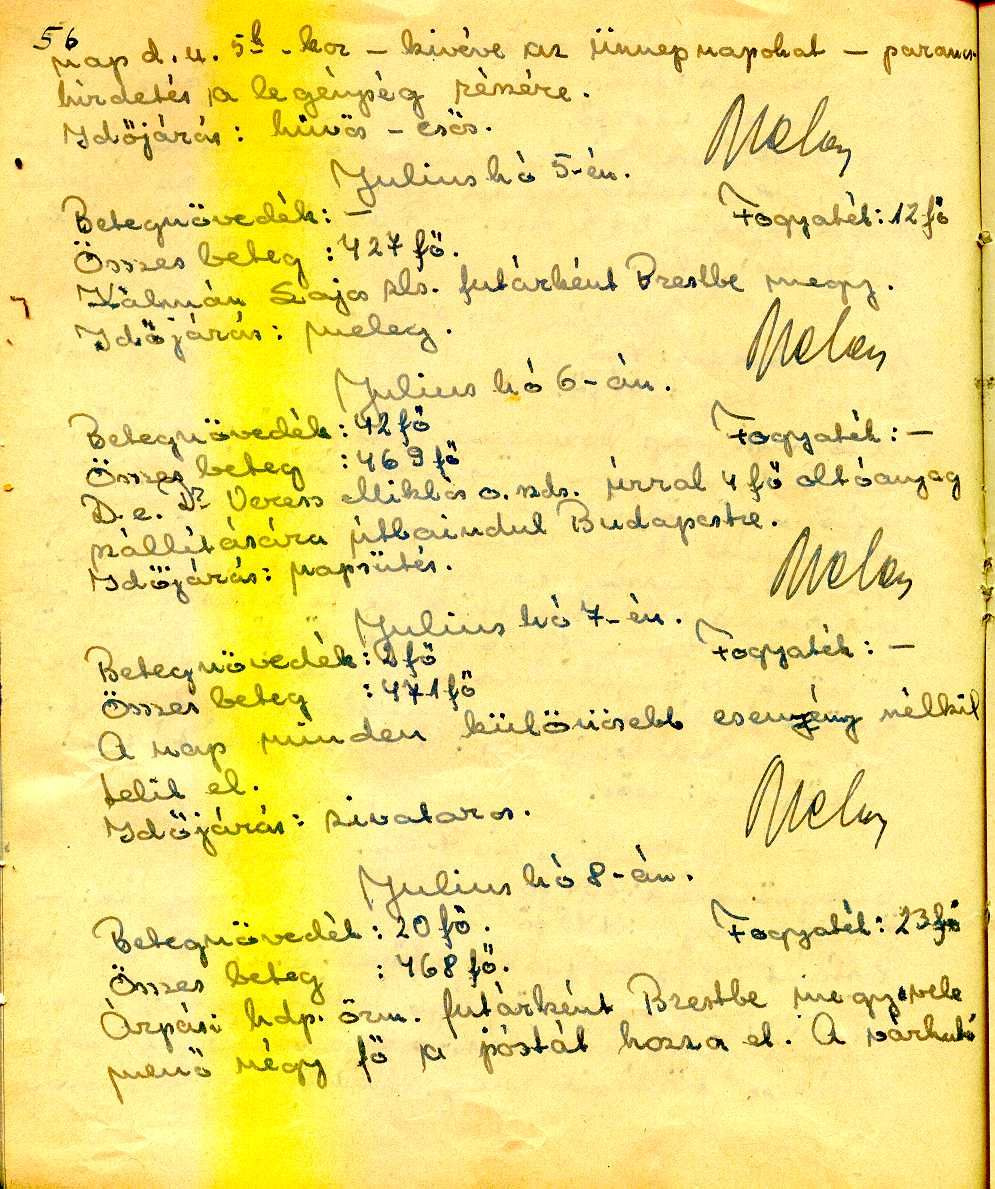 56
nap d. u. 5h - kor - kivéve az ünnepnapokat - parancs-
hirdetés a legénység részére.
Időjárás: hüvös - esős.
Julius hó 5-én.
Betegnövedék: - Fogyaték: 12 fő
Összes beteg : 427 fő.
Kálmán Lajos szls. futárként Brestbe megy.
Időjárás: meleg.
Julius hó 6-án.
Betegnövedék: 42 fő Fogyaték: -
Összes beteg : 469 fő
D. e. Dr Veress Miklós o. szds. úrral 4 fő oltóanyag
szállítására útbaindul Budapestre.
Időjárás: napsütés.
Julius hó 7-én.
Betegnövedék: 2 fő Fogyaték: -
Összes beteg : 471 fő
A nap minden különösebb esemény nélkül
telik el.
Időjárás: zivataros.
Julius hó 8-án.
Betegnövedék: 20 fő. Fogyaték: 23 fő
Összes beteg : 468 fő.
Árpási hdp. őrm. futárként Brestbe megy, vele
menő négy fő a póstát hozza el. A várható